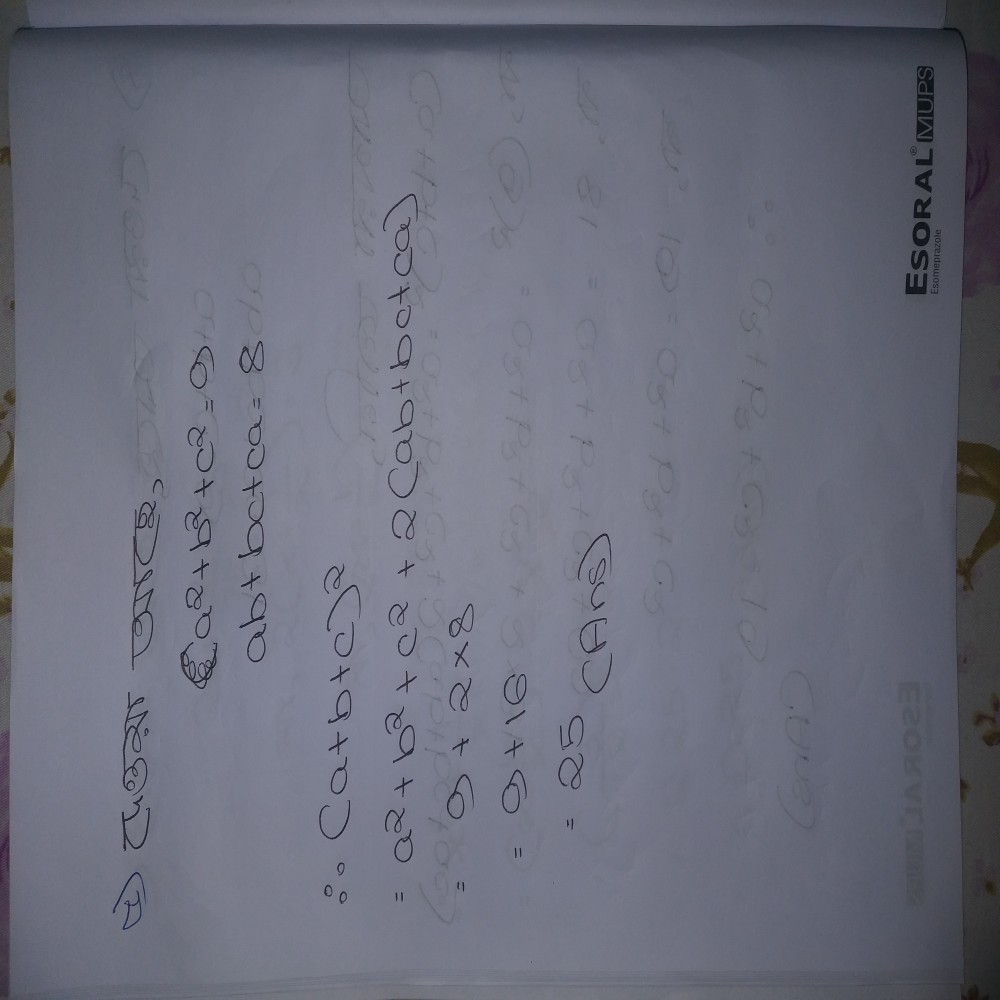 দেওয়া আছে,
a² + b² + c² = 9
ab + bc + ca = 8
∴ (a + b + c)²
= a² + b² + c² + 2 (ab + bc + ca)
= 9 + 2 × 8
= 9 + 16
= 25 (Ans)
ESORAL® MUPS
Esomeprazole